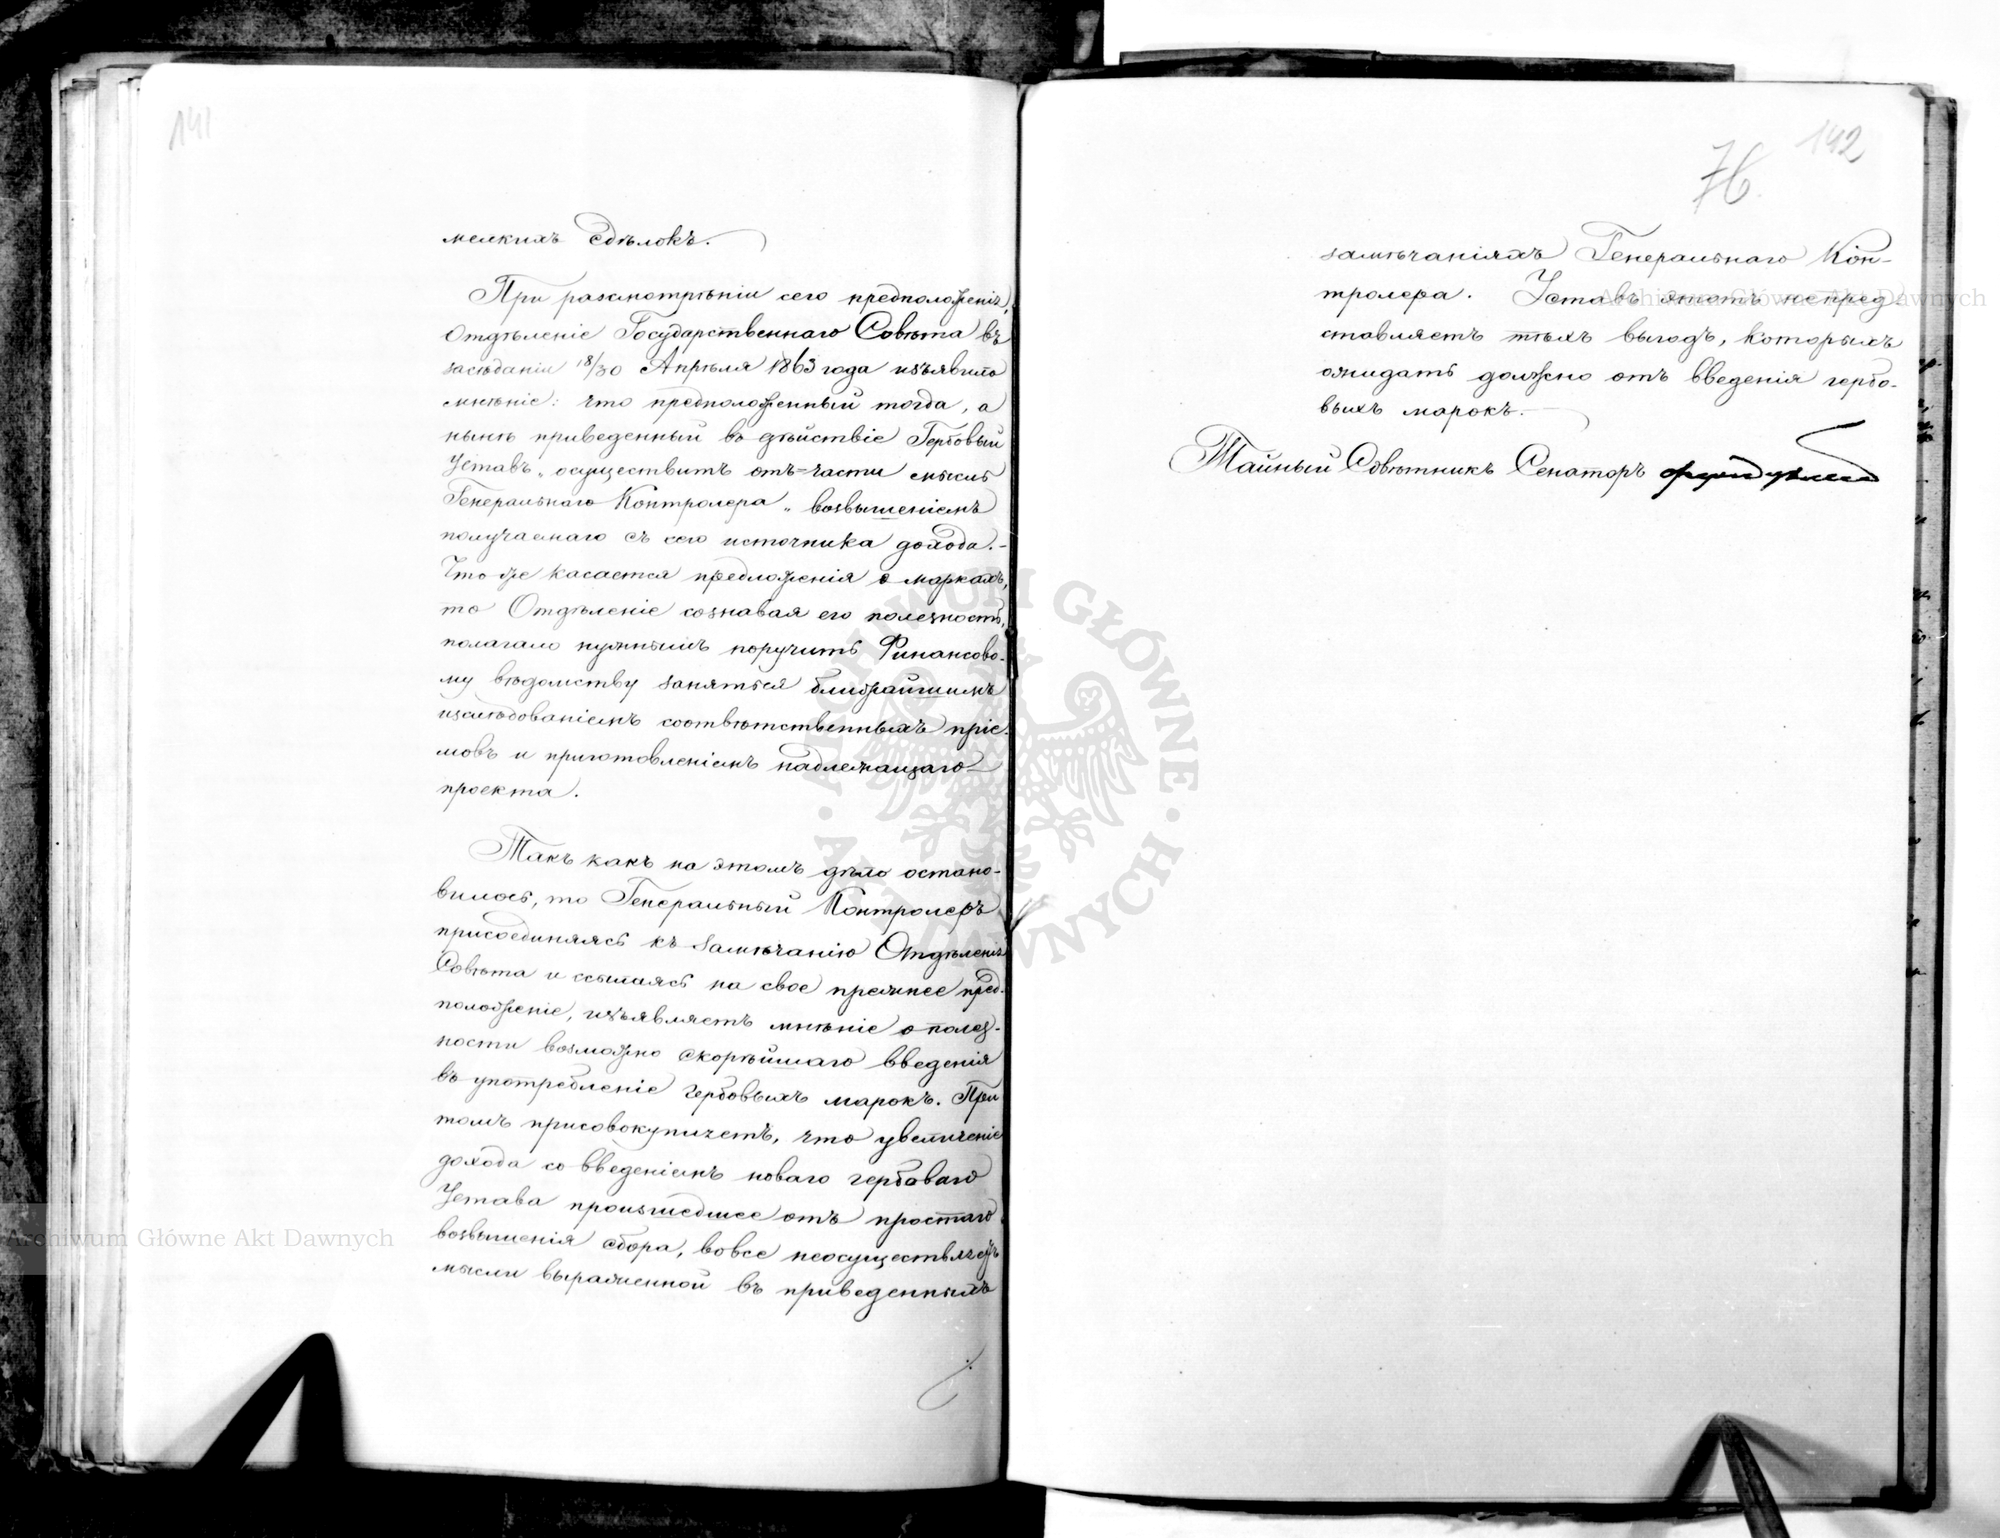 141
мелкихъ сдѣлокъ.
При разсмотрѣніи сего предположенія,
Отдѣленіе Государственнаго Совѣта въ
засѣданіи 18/30 Апрѣля 1863 года изъявило
мнѣніе: что предположенный тогда, а
нынѣ приведенный въ дѣйствіе Гербовый
Уставъ „осуществитъ отъ=части мысль
Генеральнаго Контролера„ возвышеніемъ
получаемаго съ сего источника дохода.-
Что же касается предложенія о маркахъ,
то Отдѣленіе сознавая его полезность,
полагало нужнымъ поручить Финансово-
му вѣдомству заняться ближайшимъ
изслѣдованіемъ соотвѣтственныхъ пріе-
мовъ и приготовленіемъ надлежащаго
проекта.
Такъ какъ на этомъ дѣло остано-
вилось, то Генеральный Контролеръ
присоединяясь къ замѣчанію Отдѣленія
Совѣта и ссылаясь на свое прежнее пред-
положеніе, изъявляетъ мнѣніе о полез-
ности возможно скорѣйшаго введенія
въ употребленіе гербовыхъ марокъ. При
томъ присовокупляетъ, что увеличеніе
дохода со введеніемъ новаго гербоваго
Устава происшедшее отъ простаго
возвышенія сбора, вовсе неосуществляетъ
мысли выраженной въ приведенныхъ
142
76
замѣчаніяхъ Генеральнаго Кон-
тролера. Уставъ этотъ не пред-
ставляетъ тѣхъ выгодъ, которыхъ
ожидать должно отъ введенія гербо-
выхъ марокъ.-
Тайный Совѣтникъ Сенаторъ
Archiwum Główne Akt Dawnych
Archiwum Główne Akt Dawnych
ARCHIWUM GŁÓWNE · AKT DAWNYCH ·